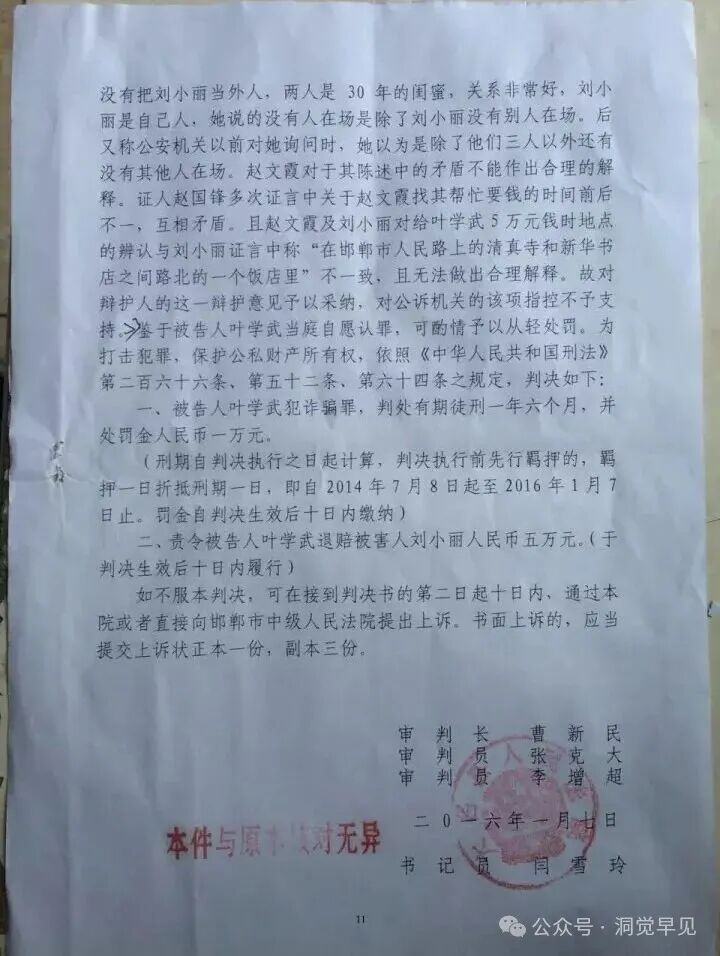 没有把刘小丽当外人，两人是 30 年的闺蜜，关系非常好，刘小
丽是自己人，她说的没有人在场是除了刘小丽没有别人在场。后
又称公安机关以前对她询问时，她以为是除了他们三人以外还有
没有其他人在场。赵文霞对于其陈述中的矛盾不能作出合理的解
释。证人赵国锋多次证言中关于赵文霞找其帮忙要钱的时间前后
不一，互相矛盾。且赵文霞及刘小丽对给叶学武 5 万元钱时地点
的辨认与刘小丽证言中称“在邯郸市人民路上的清真寺和新华书
店之间路北的一个饭店里”不一致，且无法做出合理解释。故对
辩护人的这一辩护意见予以采纳，对公诉机关的该项指控不予支
持。鉴于被告人叶学武当庭自愿认罪，可酌情予以从轻处罚。为
打击犯罪，保护公私财产所有权，依照《中华人民共和国刑法》
第二百六十六条、第五十二条、第六十四条之规定，判决如下：
一、被告人叶学武犯诈骗罪，判处有期徒刑一年六个月，并
处罚金人民币一万元。
（刑期自判决执行之日起计算，判决执行前先行羁押的，羁
押一日折抵刑期一日，即自 2014 年 7 月 8 日起至 2016 年 1 月 7
日止。罚金自判决生效后十日内缴纳）
二、责令被告人叶学武退赔被害人刘小丽人民币五万元。（于
判决生效后十日内履行）
如不服本判决，可在接到判决书的第二日起十日内，通过本
院或者直接向邯郸市中级人民法院提出上诉。书面上诉的，应当
提交上诉状正本一份，副本三份。
审 判 长 曹 新 民
审 判 员 张 克 大
审 判 员 李 增 超
二〇一六年一月七日
本件与原本核对无异
书 记 员 闫 雪 玲
11
公众号·洞觉早见